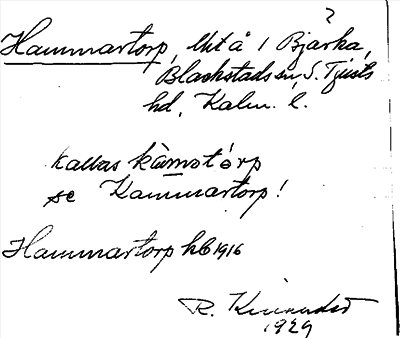 ?
Hammartorp, Uht å 1 Bjärka,
Blackstads sn, S. Tjusts
hd, Kalm. l.
kallas kàmotórp
se Kammartorp!
Hammartorp hb 1916
R.
1929